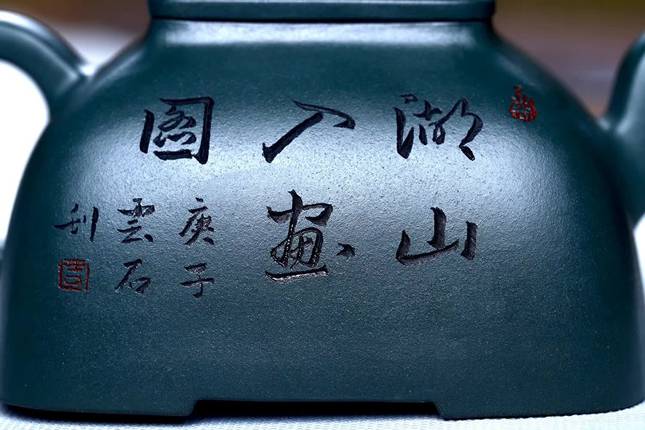 湖山
入畫
图
庚子
雲石
刻